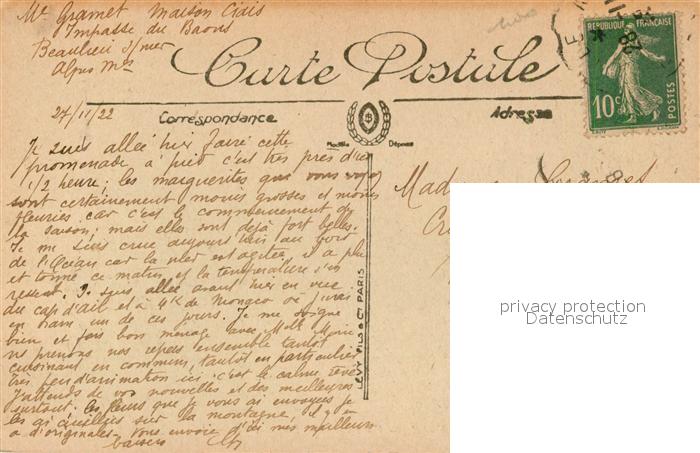 Mr Gramet Maison Ciais
Impasse du Baous
Beaulieu s/mer
Alpes Mmes
RÉPUBLIQUE FRANÇAISE
10c
POSTES
Carte Postale
27/11/22
Correspondance
Adresse
Modèle Déposé
Je suis allée hier faire cette
promenade à pied c'est très près d'ici
1/2 heure; les marguerites que vous voyez
sont certainement moins grosses et moins
fleuries car c'est le commencement de
la saison; mais elles sont déjà fort belles.
Je me suis crue aujourd'hui au bord
de l'Océan car la mer est agitée, il a plu
et tonné ce matin, et la température s'en
ressent. Je suis allée avant hier en vue
du cap d'ail et à 4k de Monaco où j'irai
en tram, un de ces jours. Je me soigne
bien et fais bon ménage avec Melle Marie
ns prenons nos repas ensemble tantôt
cuisinant en commun, tantôt en particulier
très peu d'animation ici c'est le calme rêvé
J'attends de vos nouvelles et des meilleures
surtout. les fleurs que je vous ai envoyées je
les ai cueillies sur la montagne, il y en
a d'originales. Vous envoie d'ici mes meilleurs
baisers
LÉVY FILS & Cie PARIS
privacy protection
Datenschutz